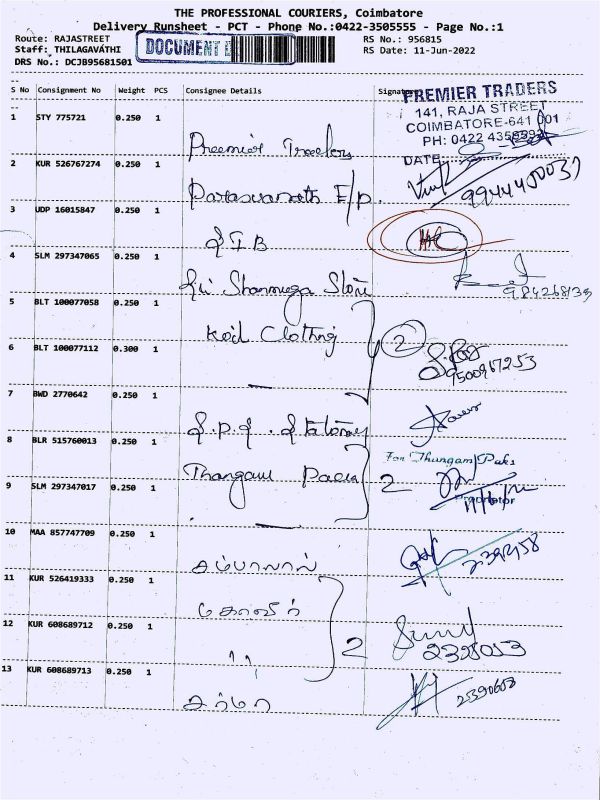 THE PROFESSIONAL COURIERS, Coimbatore
Delivery Runsheet - PCT - Phone No.:0422-3505555 - Page No.:1
Route: RAJASTREET
RS No.: 956815
Staff: THILAGAVATHI
DOCUMENT
RS Date: 11-Jun-2022
DRS No.: DCJB95681501
S No Consignment No Weight PCS Consignee Details Signature
PREMIER TRADERS
141, RAJA STREET
COIMBATORE-641 001
PH: 0422
DATE
1 STY 775721 0.250 1 Premier Traders
2 KUR 526767274 0.250 1 Paraswanath E/p.
3 UDP 16015847 0.250 1
4 SLM 297347065 0.250 1 Sri Shanmuga Store
5 BLT 100077058 0.250 1 Kodi Clothing
2
6 BLT 100077112 0.300 1
9500967253
7 BWD 2770642 0.250 1
8 BLR 515760013 0.250 1 Thangam Pack
For Thungam Paks
2
9 SLM 297347017 0.250 1
Proprietor
10 MAA 857747709 0.250 1 சம்பாலால்
11 KUR 526419333 0.250 1
12 KUR 608689712 0.250 1 "
2
13 KUR 608689713 0.250 1